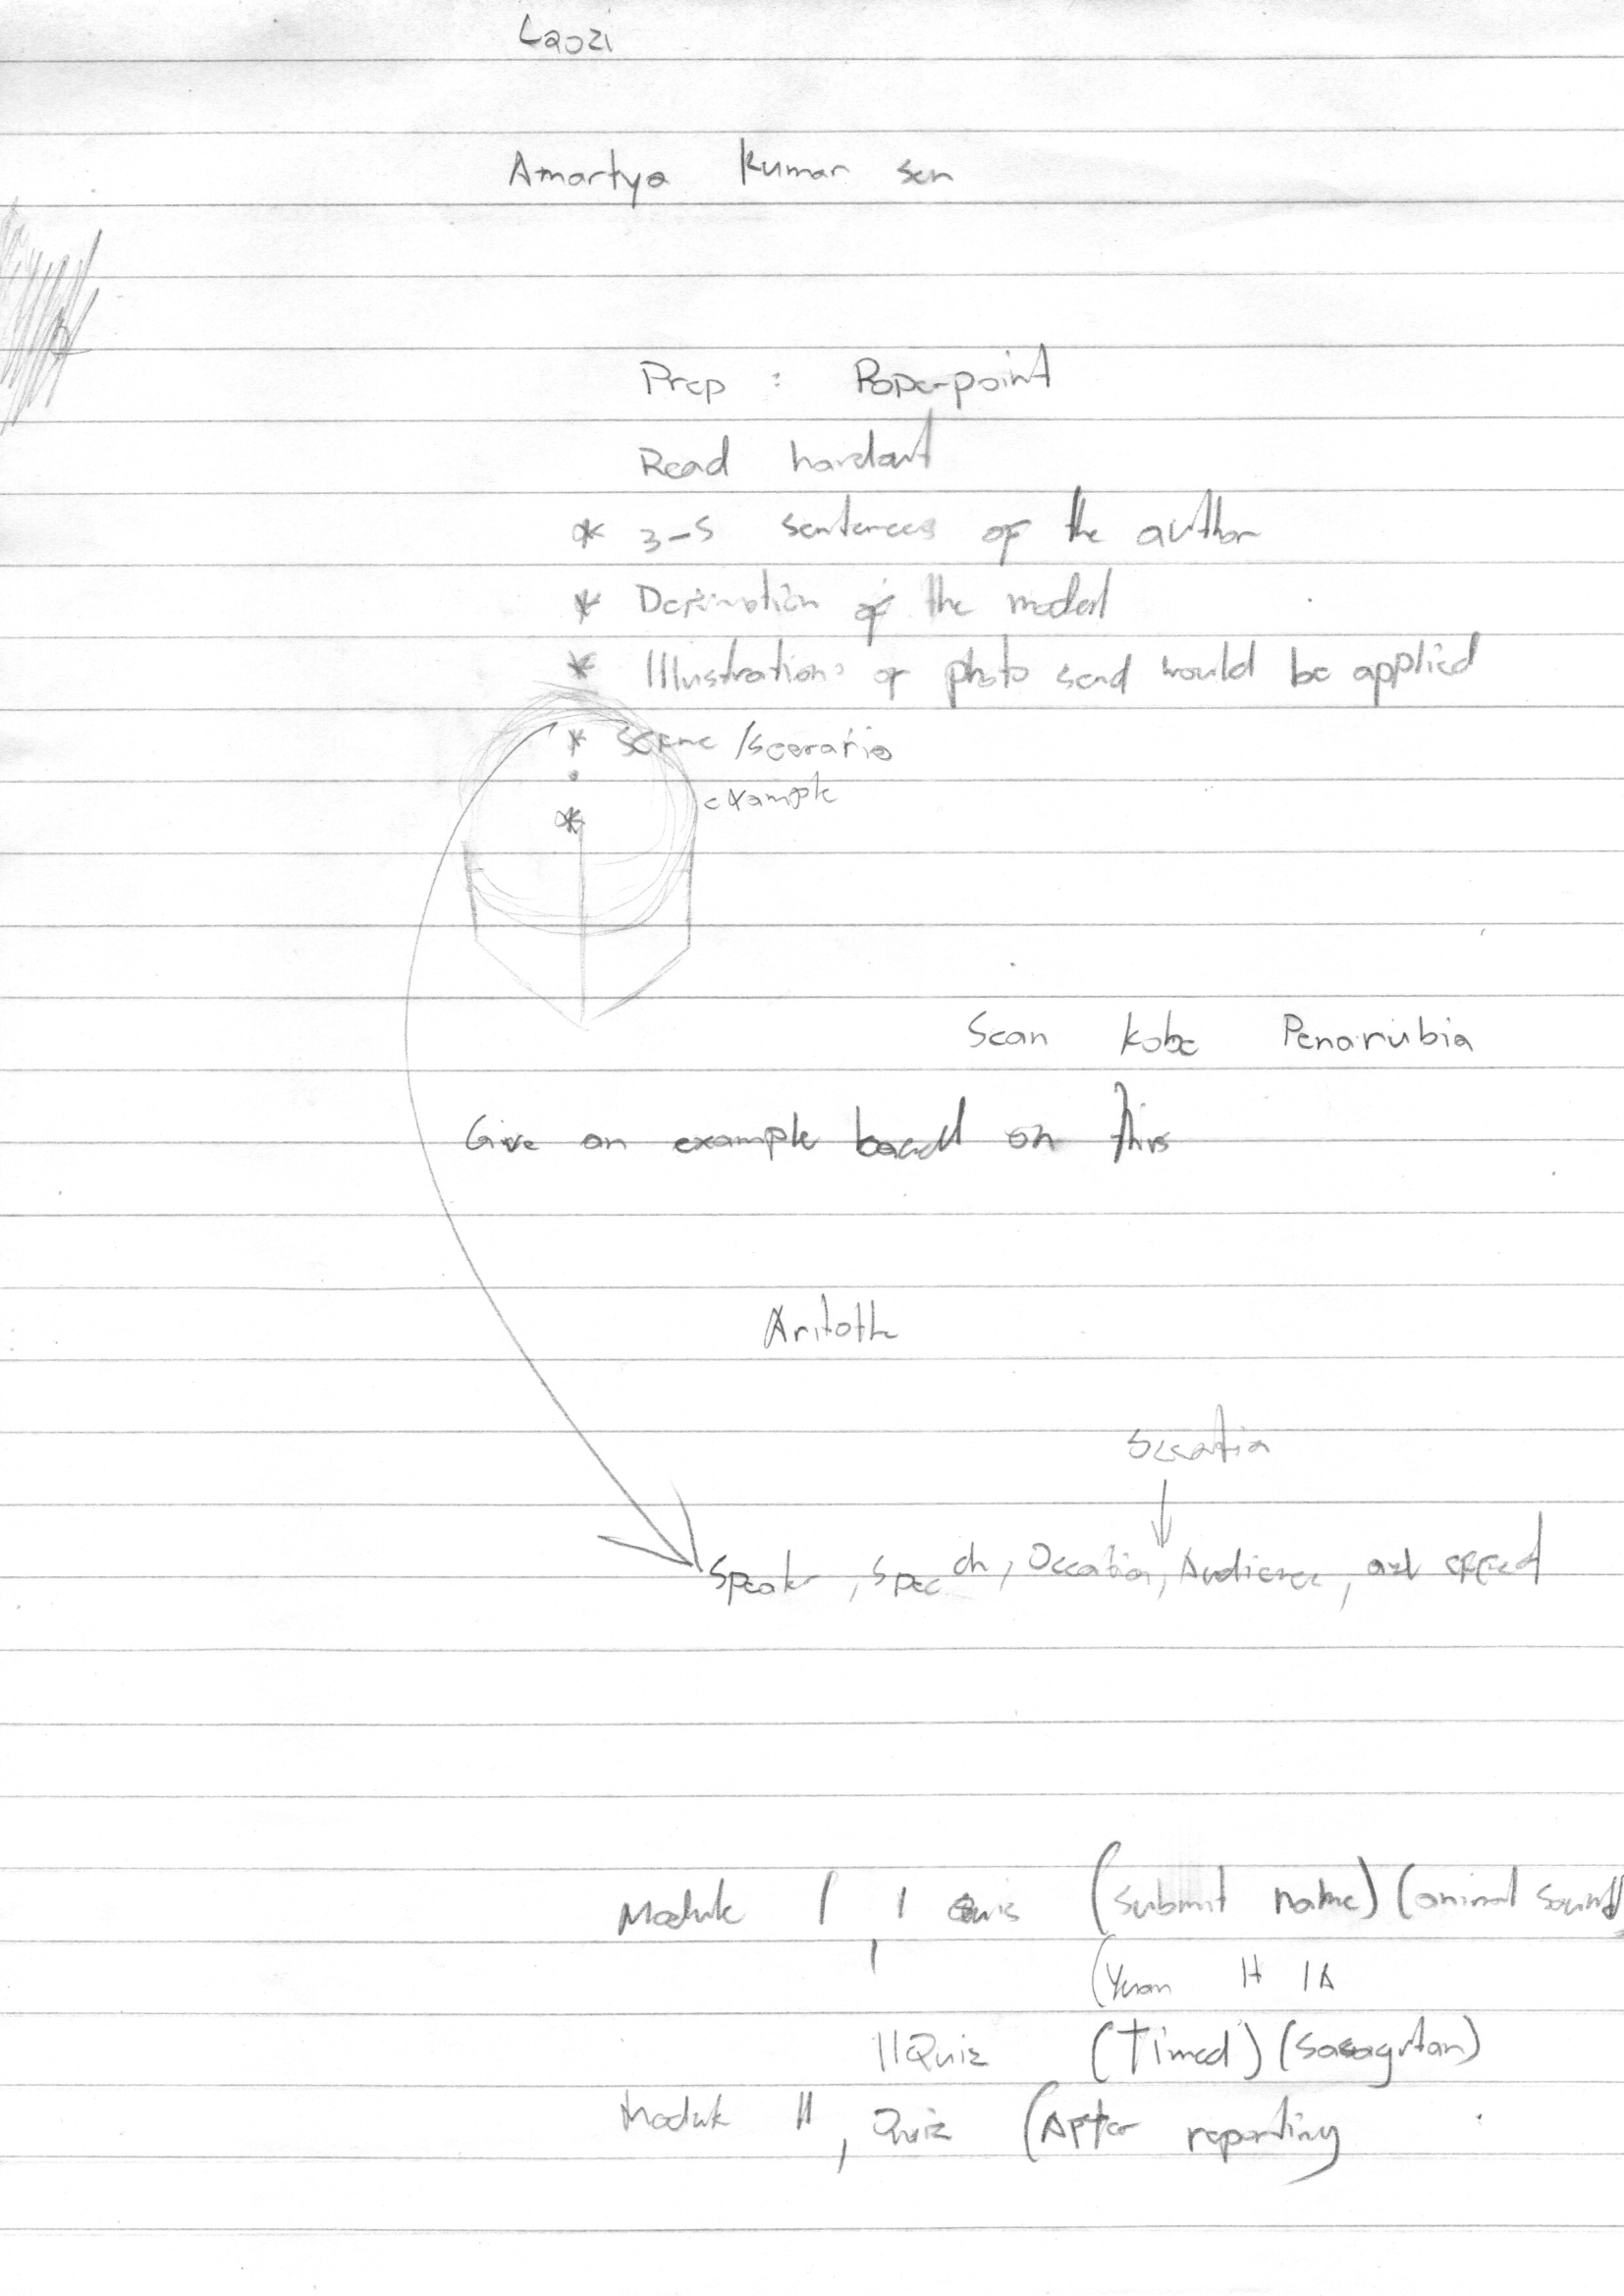 Laozi
Amartya Kumar Sen
Prep : Poperpoint
Read handout
* 3-5 sentences of the author
* Definition of the model
* Illustrations or photo send would be applied
* Scene /scerario
example
*
Sean Kobe Penarubia
Give an example based on this
Aritotle
Speaker, Speech, Occatio, Audience, and effect
Module I 1 Quis (Submit name) (animal sound)
(Yuan H 1A
II Quiz (Timed) (Sasagutan)
Module II, Quiz (After reporting